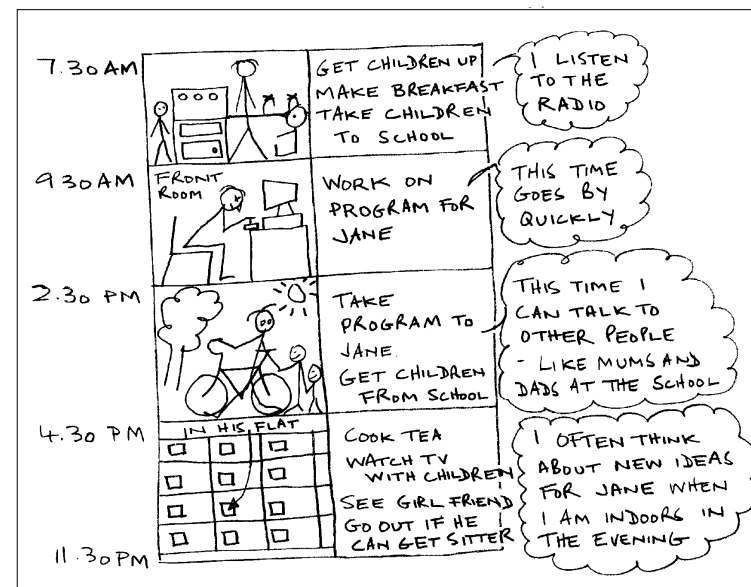 7.30 AM
GET CHILDREN UP
MAKE BREAKFAST
TAKE CHILDREN
TO SCHOOL
I LISTEN
TO THE
RADIO
9 30 AM
FRONT
ROOM
WORK ON
PROGRAM FOR
JANE
THIS TIME
GOES BY
QUICKLY
2.30 PM
TAKE
PROGRAM TO
JANE.
GET CHILDREN
FROM SCHOOL
THIS TIME I
CAN TALK TO
OTHER PEOPLE
- LIKE MUMS AND
DADS AT THE SCHOOL
4.30 PM
IN HIS FLAT
COOK TEA
WATCH TV
WITH CHILDREN
SEE GIRL FRIEND
GO OUT IF HE
CAN GET SITTER
I OFTEN THINK
ABOUT NEW IDEAS
FOR JANE WHEN
I AM INDOORS IN
THE EVENING
11.30 PM